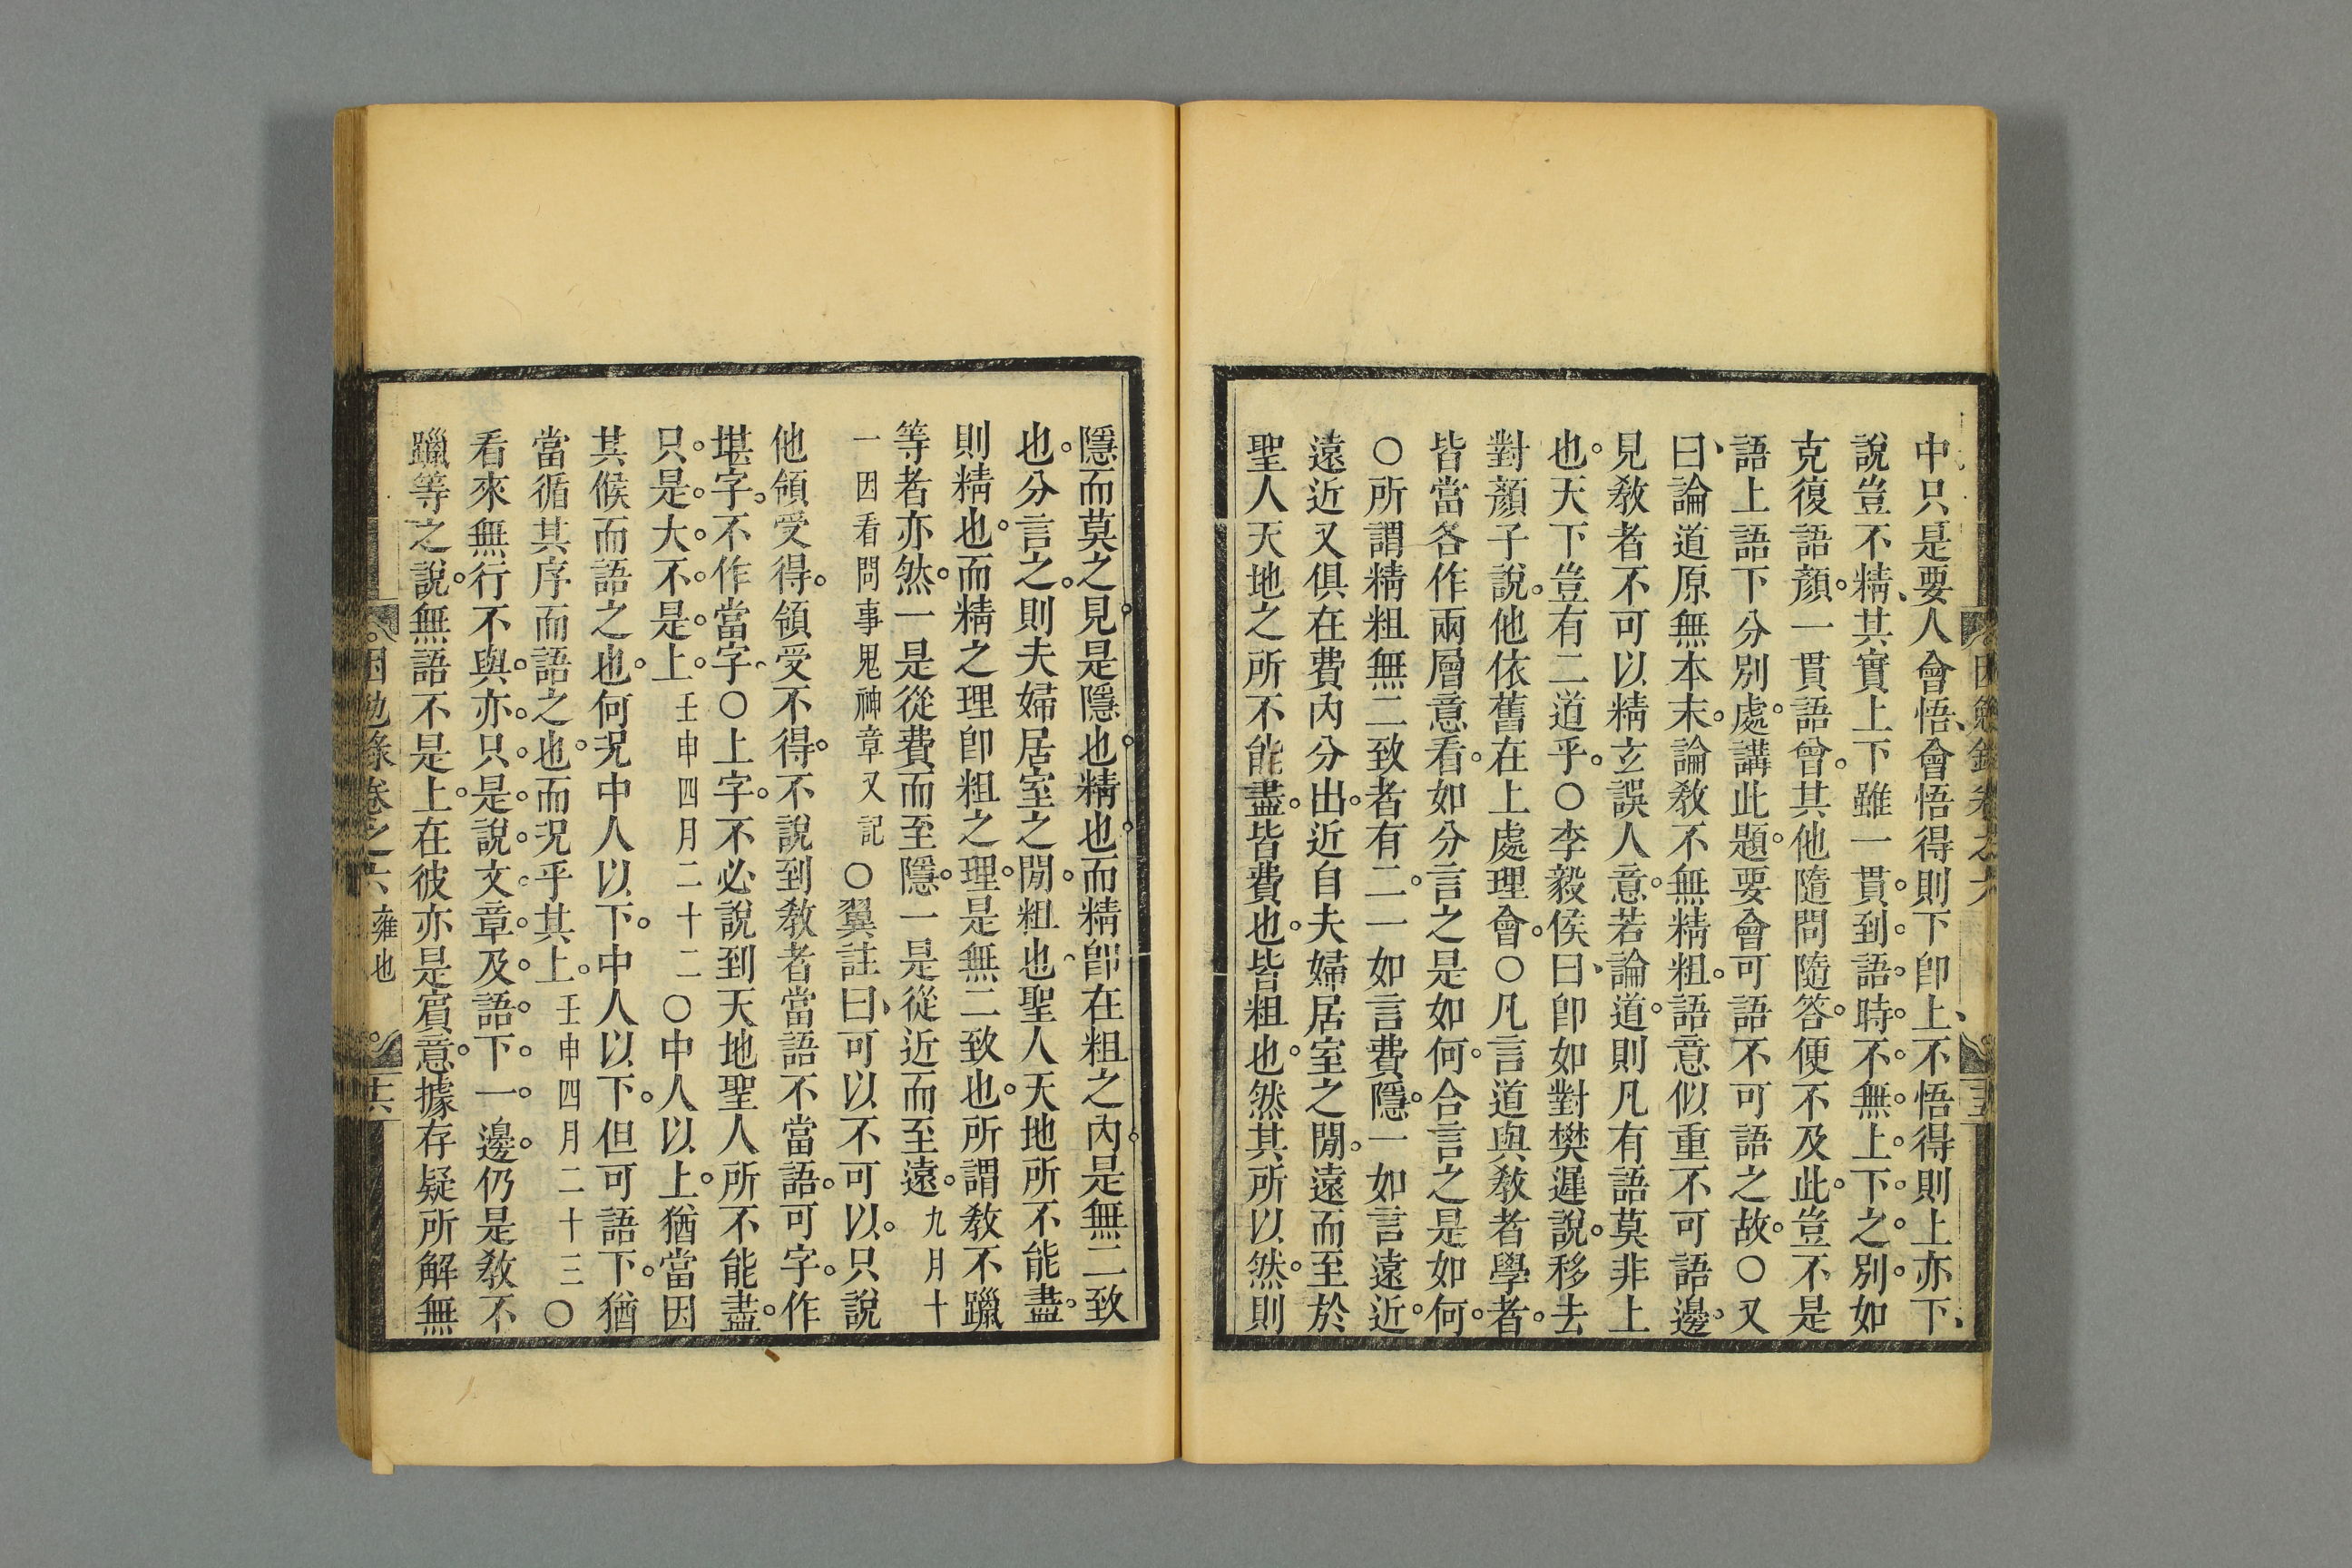 中只是要人會悟會悟得則下卽上不悟得則上亦下
說豈不精其實上下雖一貫到語時不無上下之別如
克復語顏一貫語曾其他隨問隨答便不及此豈不是
語上語下分別處講此題要會可語不可語之故○又
曰論道原無本末論敎不無精粗語意似重不可語邊
見敎者不可以精玄誤人意若論道則凡有語莫非上
也天下豈有二道乎○李毅侯曰卽如對樊遲說移去
對顏子說他依舊在上處理會○凡言道與敎者學者
皆當各作兩層意看如分言之是如何合言之是如何
○所謂精粗無二致者有二一如言費隱一如言遠近
遠近又俱在費內分出近自夫婦居室之閒遠而至於
聖人天地之所不能盡皆費也皆粗也然其所以然則
隱而莫之見是隱也精也而精卽在粗之內是無二致
也分言之則夫婦居室之閒粗也聖人天地所不能盡
則精也而精之理卽粗之理是無二致也所謂敎不躐
等者亦然一是從費而至隱一是從近而至遠九月十
一因看問事鬼神章又記○翼註曰可以不可以只說
他領受得領受不得不說到敎者當語不當語可字作
堪字不作當字○上字不必說到天地聖人所不能盡
只是大不是上壬申四月二十二○中人以上猶當因
其候而語之也何況中人以下中人以下但可語下猶
當循其序而語之也而況乎其上壬申四月二十三○
看來無行不與亦只是說文章及語下一邊仍是敎不
躐等之說無語不是上在彼亦是賓意據存疑所解無
困勉錄卷之六 雍也 十六